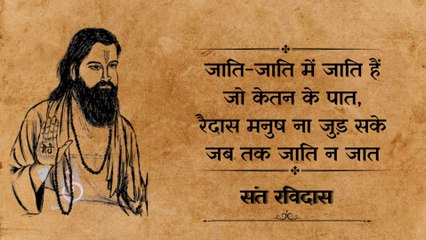 जाति-जाति में जाति हैं
जो केतन के पात,
रैदास मनुष ना जुड़ सके
जब तक जाति न जात
संत रविदास